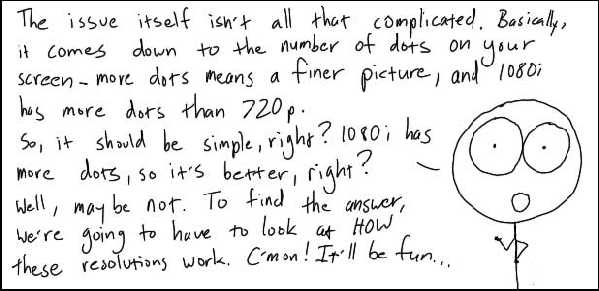 The issue itself isn't all that complicated. Basically,
it comes down to the number of dots on your
screen - more dots means a finer picture, and 1080i
has more dots than 720p.
So, it should be simple, right? 1080i has
more dots, so it's better, right?
Well, maybe not. To find the answer,
we're going to have to look at HOW
these resolutions work. C'mon! It'll be fun...